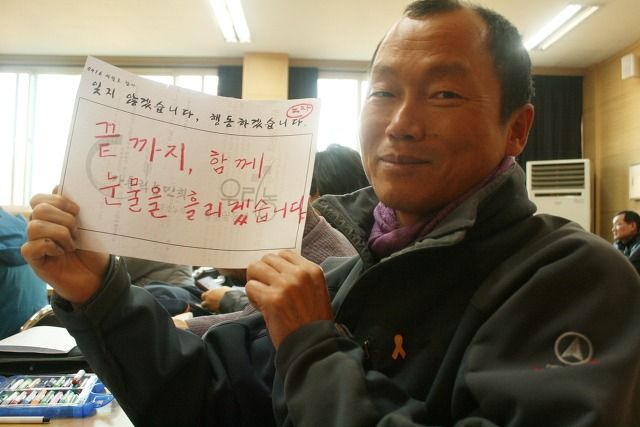 잊지 않겠습니다, 행동하겠습니다.
끝까지, 함께
눈물을 흘리겠습니다